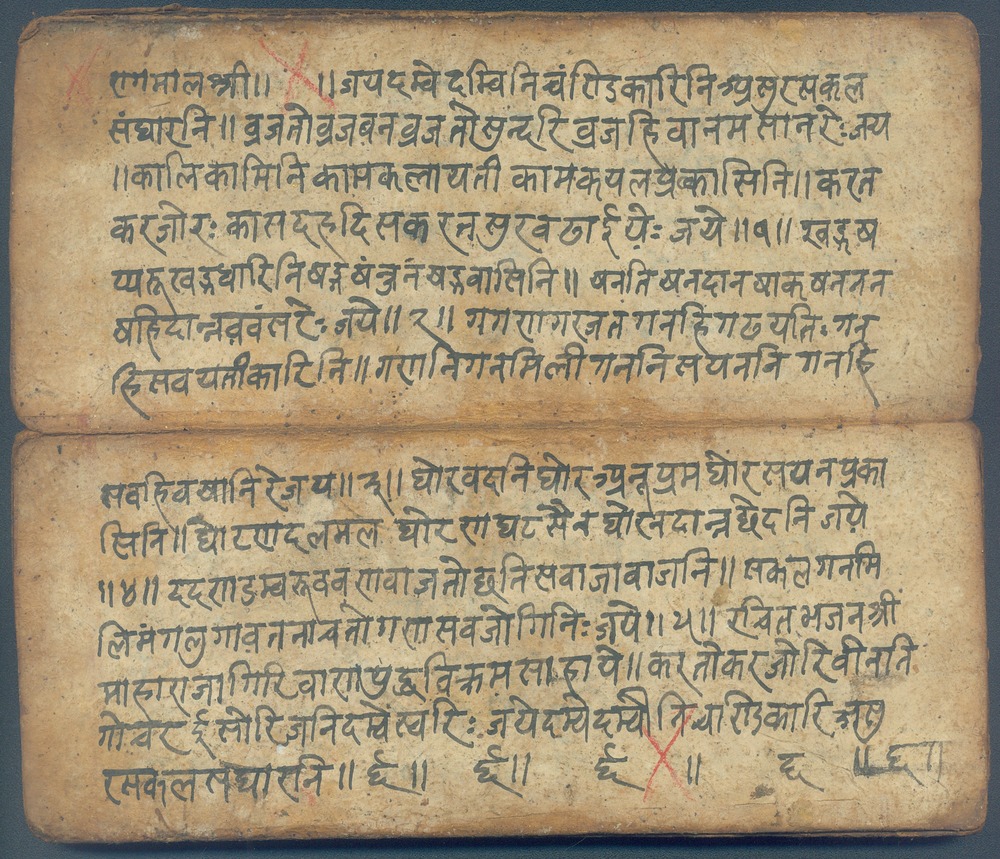 रागमालश्री॥ ॥जयदम्वेदम्विनिचंराडिकारिनिअसुरसकल
संघारनि॥ व्रजतोव्रजवनव्रजतोसुन्दरिव्रजहिवानमसानरेः जय
॥कालिकामिनि कामकलायती कामकयलप्रकासिनि॥ करत
करजोरः कासदहदिसकरनसुरवढाईयेः जये॥१॥ खड्गष
खड्गधारिनिषड्ग षड्गवासिनि॥ षनदानषाकषननन
षहिदान्नववंसरेः जये॥२॥ गगरागरजत गनहिगढयतिः गन
हिसवयतीकारिनि॥ गरानिगनमिलीगननिसयननि गनहि
सवहिवषानिरेजय॥३॥ घोरवदनिघोरअनूप्रमघोरसयनप्रका
सिनि॥ घोरराादलमल घोरराघटसैन घोरनदान्नछेदनि जये
॥४॥ ददराडम्वरुववरावाजतोधुनिसवाजावाजनि॥ सकलगनमि
लिमंगलुगावतनाचतोगरासवजोगिनिः जये॥५॥ रचितभजनश्री
माहाराजागिरिवाराप्रुद्धविक्रमसाहाये॥ करतोकरजोरिवीनति
गोचरईसोरिजनिदम्वेस्वरिः जयेदम्वेदम्वी कारिअसु
रसकलसंघारनि॥ ॥ ॥ ॥ ॥